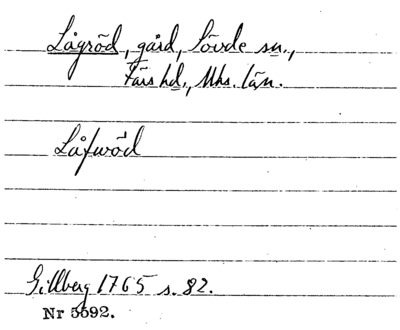 Lågröd, gård, Sövde sn.,
Färs hd., Mhs. län.
Låfwöd
Gillberg 1765 s. 82.
Nr 5592.